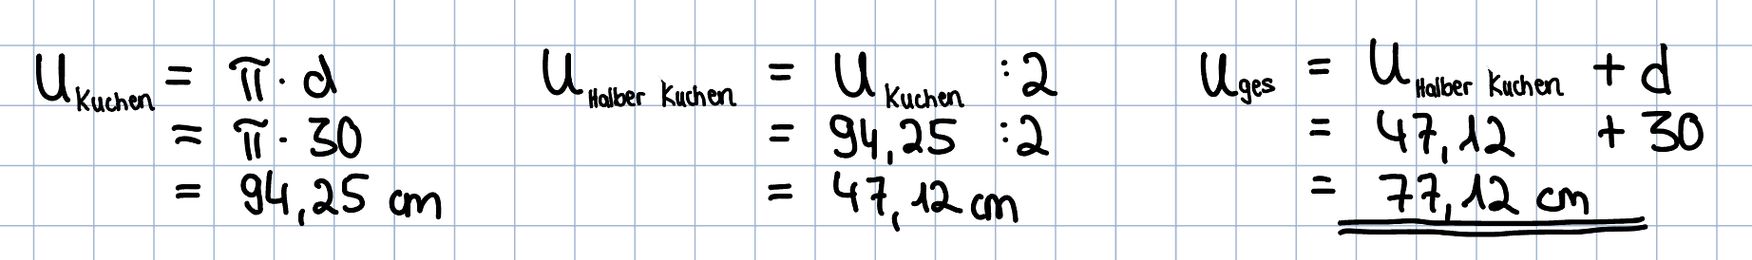 U Kuchen = π · d
= π · 30
= 94,25 cm
U Halber Kuchen = U Kuchen :2
= 94,25 :2
= 47,12 cm
U ges = U Halber Kuchen + d
= 47,12 + 30
= 77,12 cm